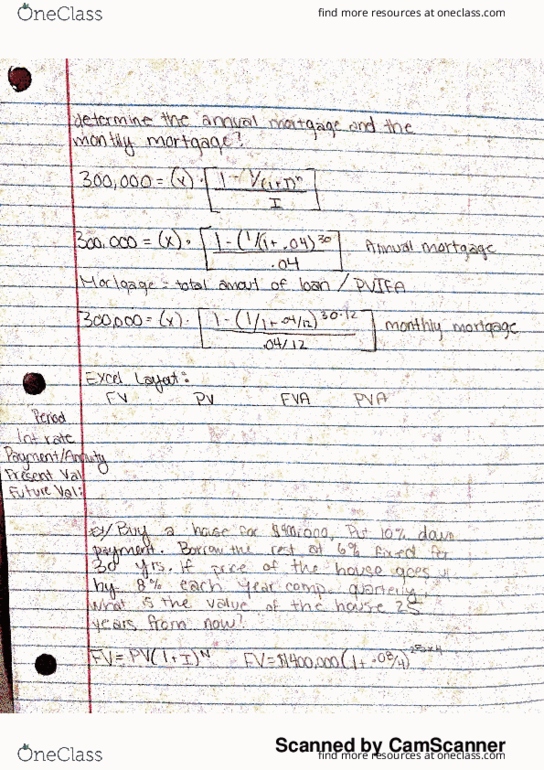 OneClass
find more resources at oneclass.com
determine the annual mortgage and the
monthly mortgage?
300,000 = (x) · [1 - 1/(1+I)^n / I]
300,000 = (x) · [1 - (1/(1+.04)^30 / .04] Annual mortgage
Mortgage = total amout of loan / PVIFA
300,000 = (x) · [1 - (1/1+.04/12)^30·12 / .04/12] monthly mortgage
Excel Layout:
FV PV FVA PVA
Period
Int rate
Payment/Annuity
Present Val
Future Val:
Buy a house for Put 10% down
payment. Borrow the rest at 6% fixed for
30 yrs. If price of the house goes
by 8% each year comp. quarterly,
what is the value of the house 25
years from now?
FV = PV(1+I)^N FV = $1400,000(1+.08/4)^25×4
Scanned by CamScanner
OneClass
find more resources at oneclass.com